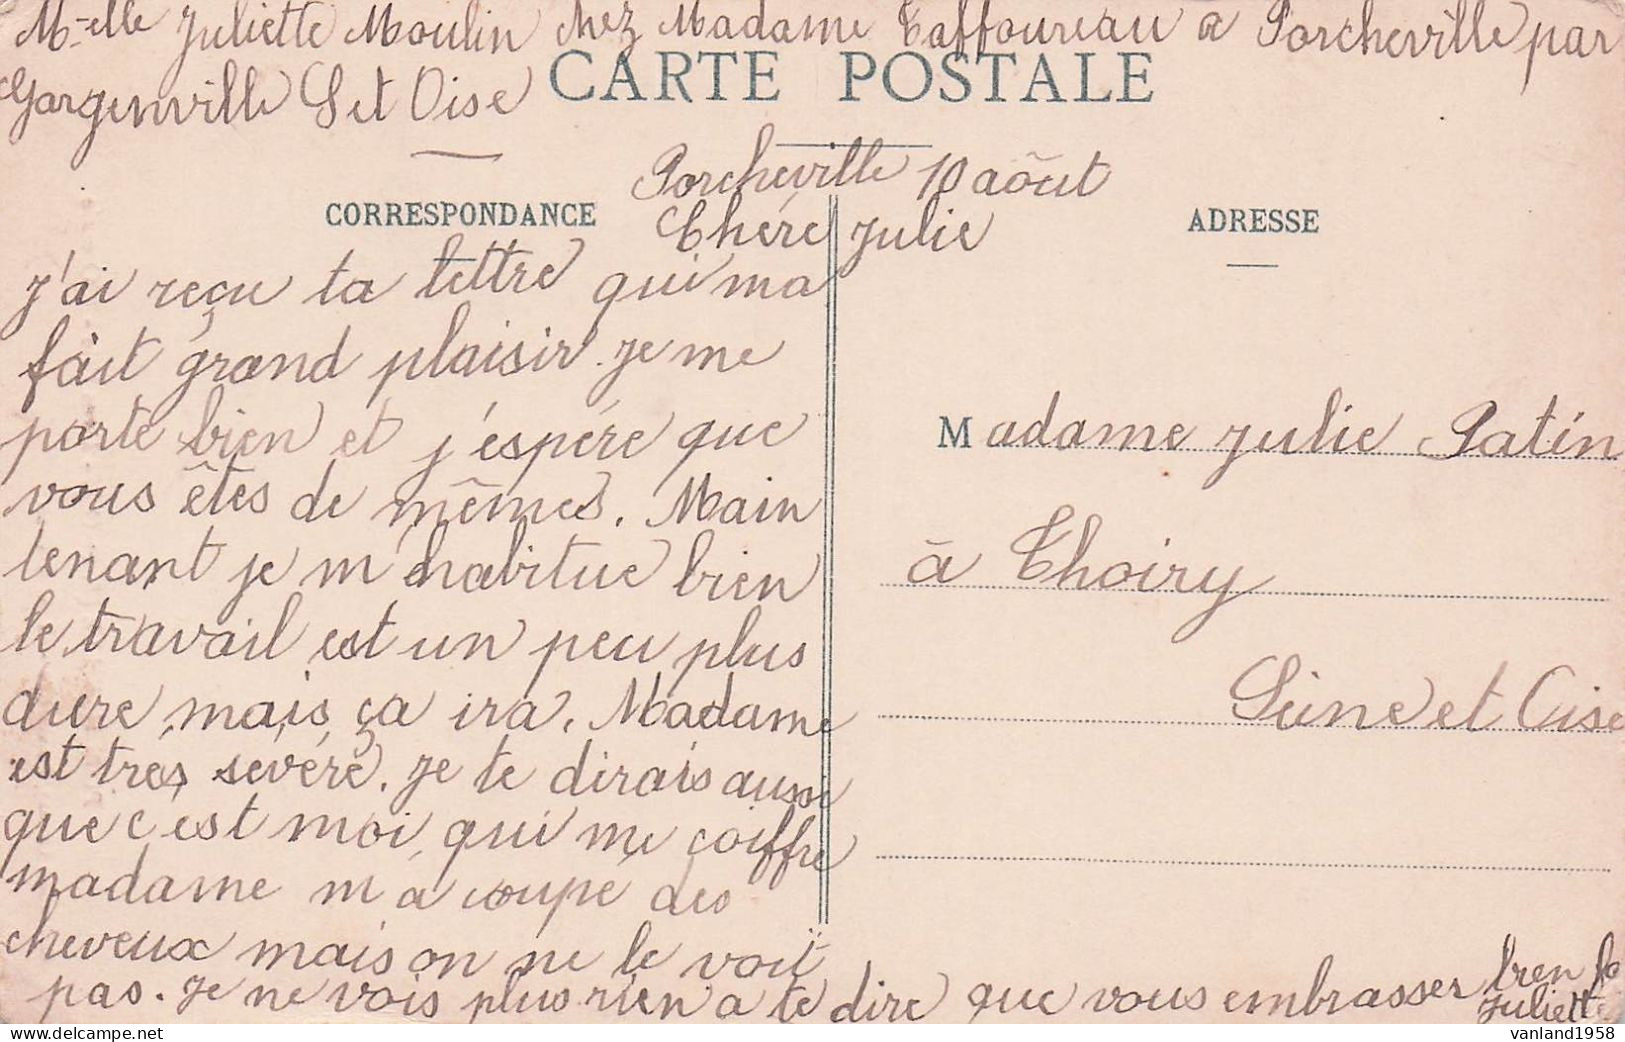 M-elle Juliette Moulin chez Madame Taffoureau a Porcheville par
Gargenville S et Oise
CARTE POSTALE
Porcheville 10 aôut
CORRESPONDANCE
ADRESSE
Chére Julie
J'ai reçu ta lettre qui ma
fait grand plaisir. Je me
porte bien et j'éspére que
vous êtes de mêmes. Main
tenant je m'habitue bien
le travail est un peu plus
dure mais ça ira. Madame
est trés sévére. Je te dirais aussi
que c'est moi qui me coiffre
madame m'a coupé des
cheveux mais on ne le voit
pas. Je ne vois plus rien a te dire que vous embrasser bien fo
Juliette
Madame Julie Patin
à Thoiry
Seine et Oise
vanland1958